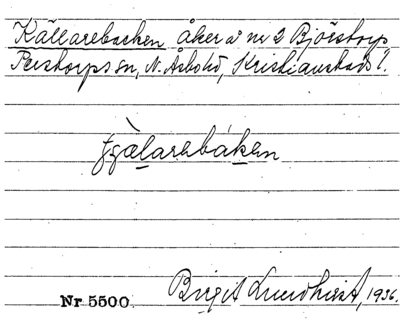 Källarebacken åker å nr 2 Björstorp
Perstorps sn, N. Åsbo hd, Kristianstads l.
Birgit Lundkvist, 1936.
Nr 5500